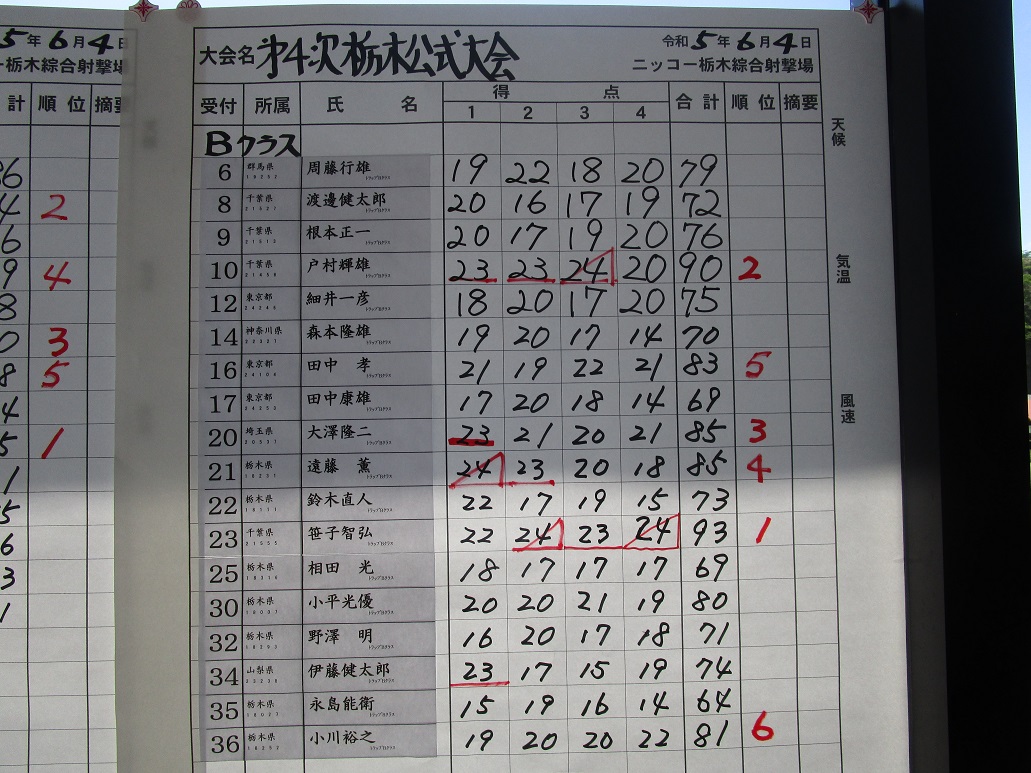 5年6月4日
ー栃木綜合射撃場
計 順位 摘要
86
4 2
6
9 4
8
0 3
8 5
4
5 1
1
5
6
3
1
大会名 第4次栃木公式大会 令和5年6月4日
ニッコー栃木綜合射撃場
受付 所属 氏名 得点 合計 順位 摘要
1 2 3 4
Bクラス
6 群馬県 周藤行雄 19 22 18 20 79
8 千葉県 渡邊健太郎 20 16 17 19 72
9 千葉県 根本正一 20 17 19 20 76
10 千葉県 戸村輝雄 23 23 24 20 90 2
12 東京都 細井一彦 18 20 17 20 75
14 神奈川県 森本隆雄 19 20 17 14 70
16 東京都 田中 孝 21 19 22 21 83 5
17 東京都 田中康雄 17 20 18 14 69
20 埼玉県 大澤隆二 23 21 20 21 85 3
21 栃木県 遠藤 薫 24 23 20 18 85 4
22 栃木県 鈴木直人 22 17 19 15 73
23 千葉県 笹子智弘 22 24 23 24 93 1
25 栃木県 相田 光 18 17 17 17 69
30 栃木県 小平光優 20 20 21 19 80
32 栃木県 野澤 明 16 20 17 18 71
34 山梨県 伊藤健太郎 23 17 15 19 74
35 栃木県 永島能衛 15 19 16 14 64
36 栃木県 小川裕之 19 20 20 22 81 6
天候
気温
風速